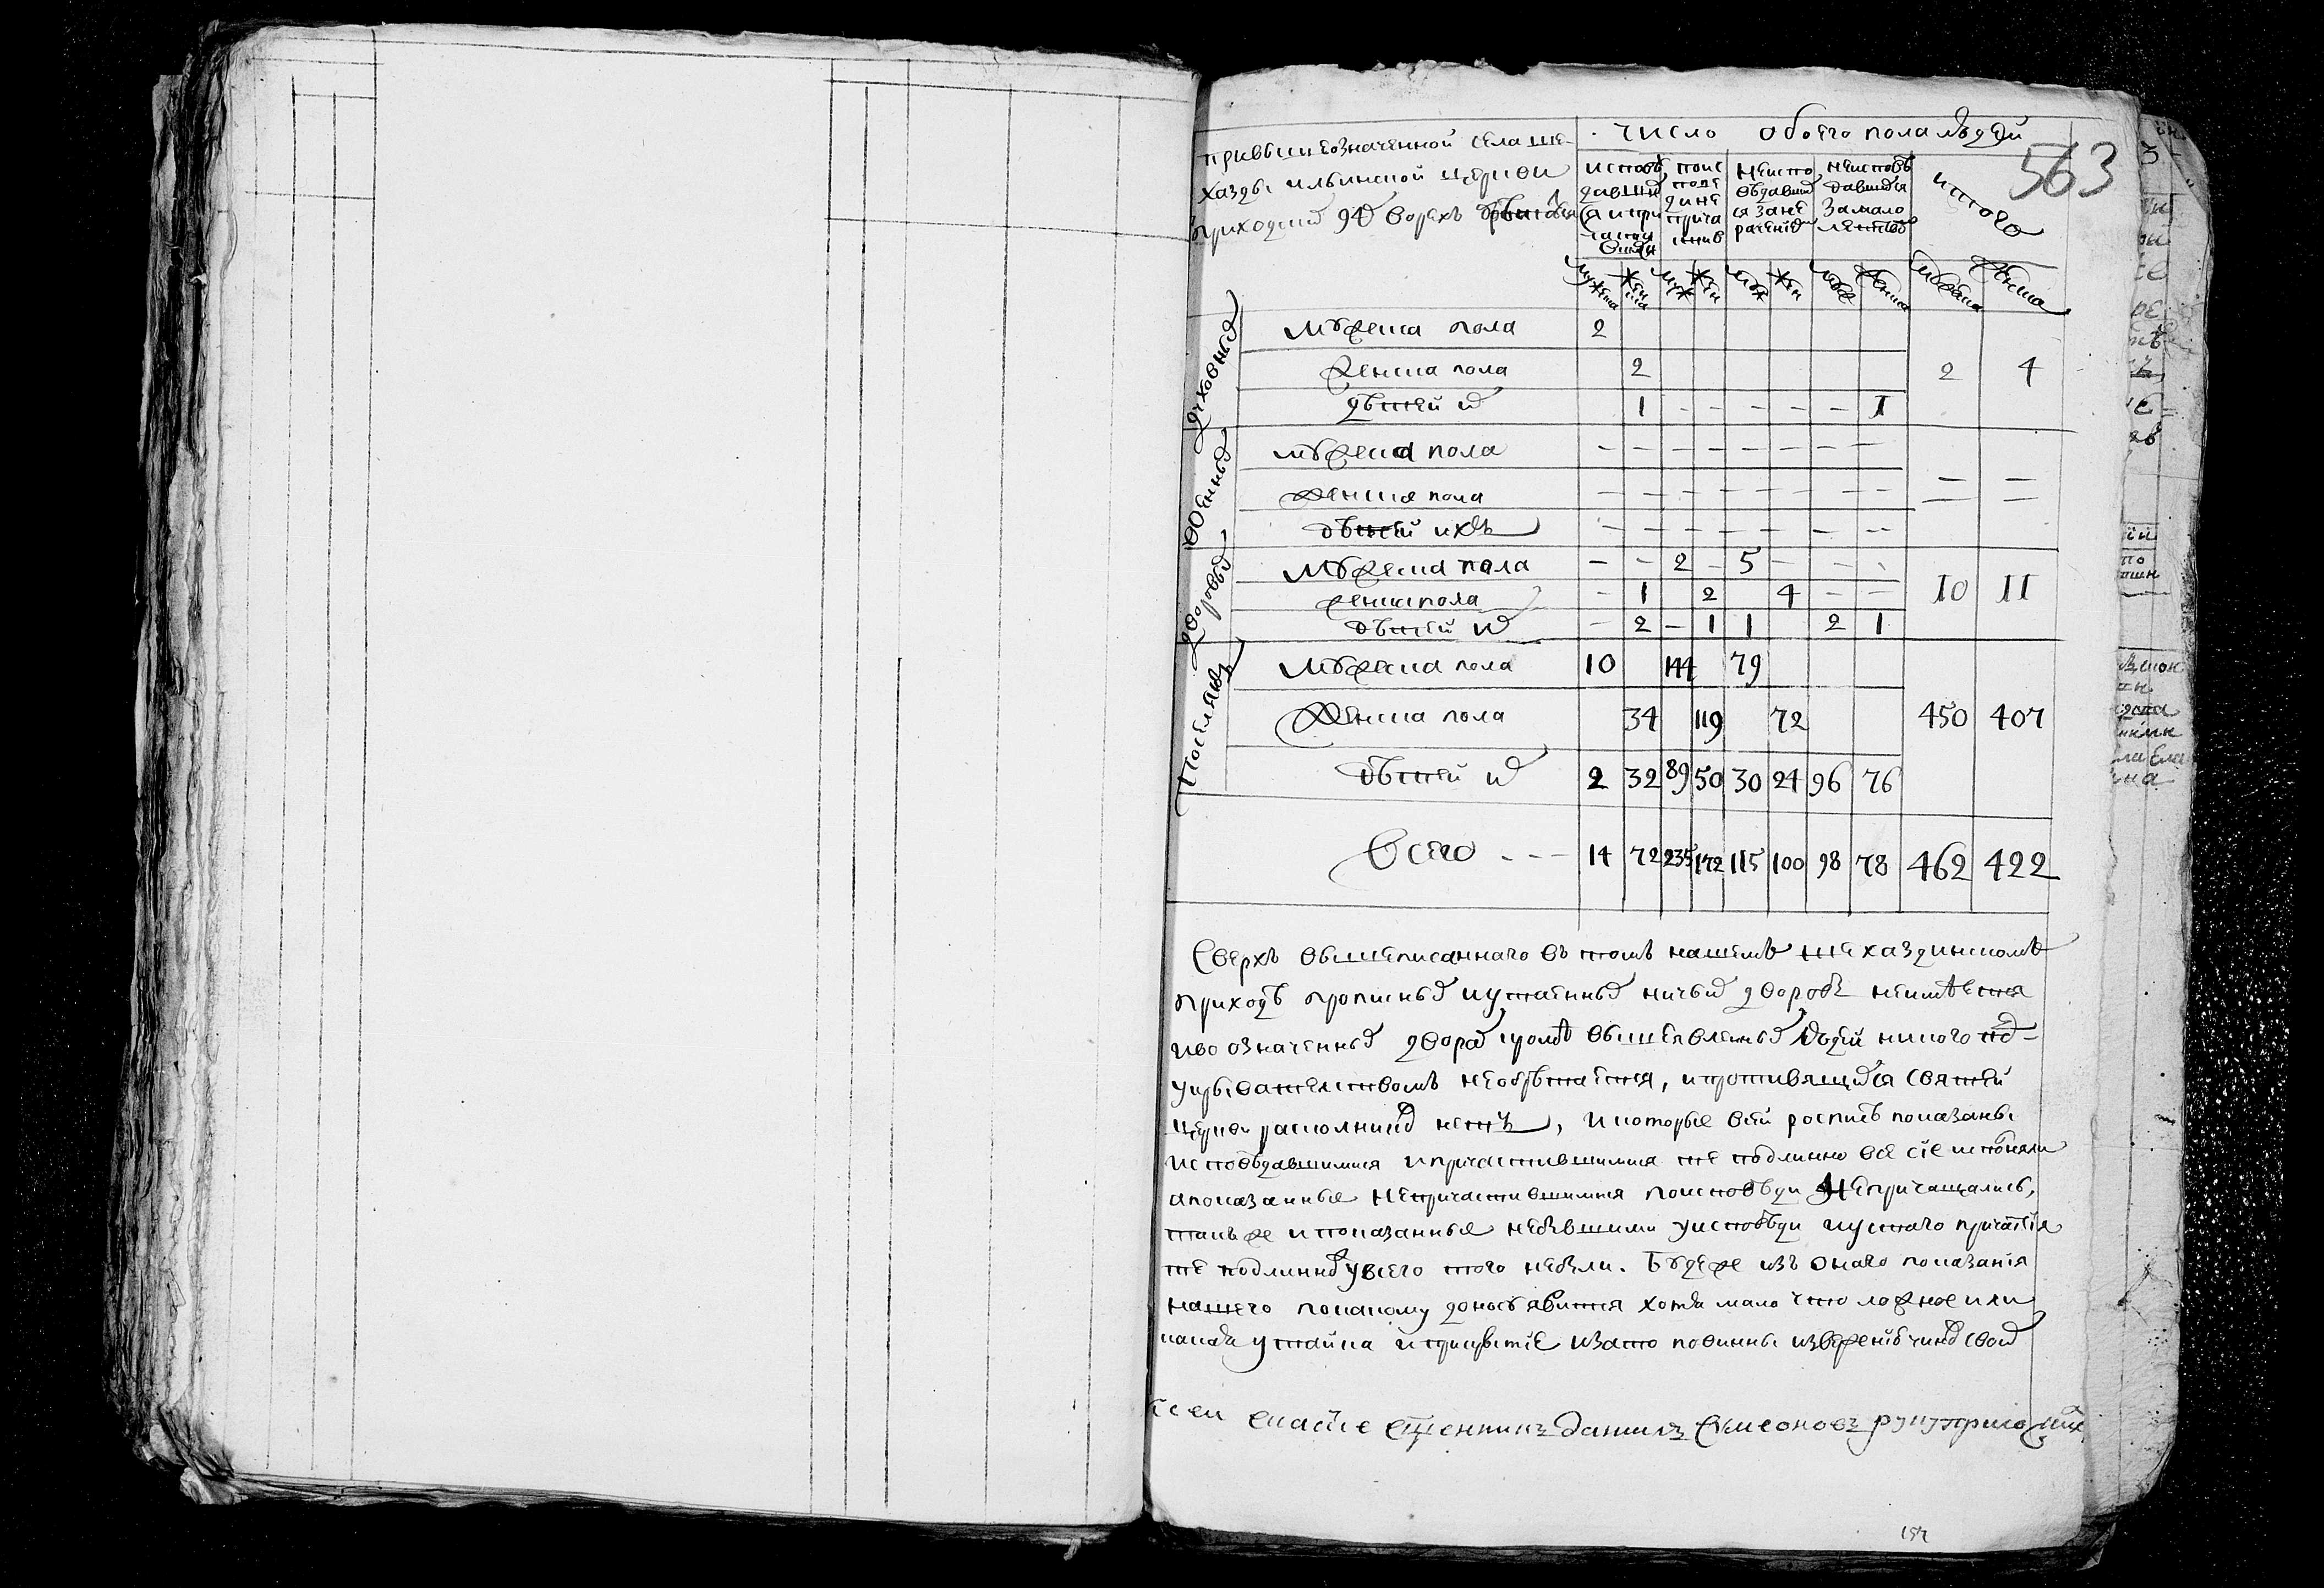 563
при вышеозначенной села ше
хазды ильинской церкви
приходских 94х дворехъ
число обоего пола людей
исповѣдавшихся и причастившихся
неисповѣдавшихся за нерачениемъ
неисповѣдавшихся за малолетствомъ
итого
мужеска женска муж жен муж жен муж женска мужеска женска
духовныхъ
мужеска пола 2
женска пола 2 2 4
дѣтей их 1 - - - - - 1
военныхъ
мужеска пола - - - - - - - -
женска пола - - - - - - - - = =
дѣтей ихъ - - - - - - - -
дворовых
мужеска пола - - 2 - 5 - - -
женска пола - 1 2 4 - - 10 11
дѣтей их - 2 - 1 1 2 1
поселянъ
мужеска пола 10 144 79
женска пола 34 119 72 450 407
дѣтей их 2 32 89 50 30 24 96 76
всего - - - 14 72 235 172 115 100 98 78 462 422
Сверхъ вышеписаннаго въ томъ нашемъ шехаздинскомъ
приходѣ прописныхъ и утаенныхъ ничьихъ дворовъ неимѣется
и во означенныхъ дворахъ кромѣ вышеявленныхъ людей никого под
укрывателствомъ необрѣтается, и противящихся святей
церкви расколниковъ нетъ, и которые в сей росписѣ показаны
исповѣдавшимися и причастившимися те подлинно все сіе исполняли
а показанные непричастившимися по исповѣди непричащались,
такъ же и показанные небывшими у исповѣди и у святаго причастія
те подлинно у всего того небыли. Буде же изъ онаго показанія
нашего по какому доносѣ явится хотя мало что ложное или
какая утайка и прикрытіе и за то повинны извержениѣ чиновъ своихъ
к сей священникъ Данилъ Симеоновъ руку приложилъ
154